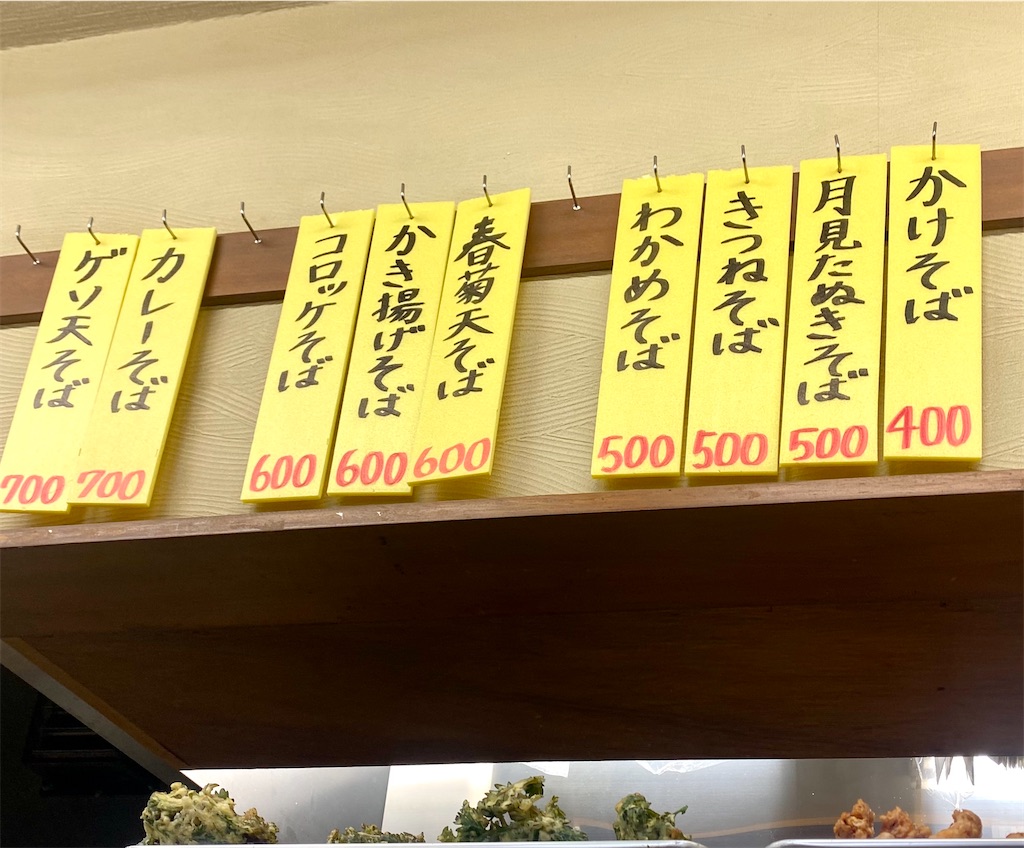 かけそば
400
月見たぬきそば
500
きつねそば
500
わかめそば
500
春菊天そば
600
かき揚げそば
600
コロッケそば
600
カレーそば
700
ゲソ天そば
700